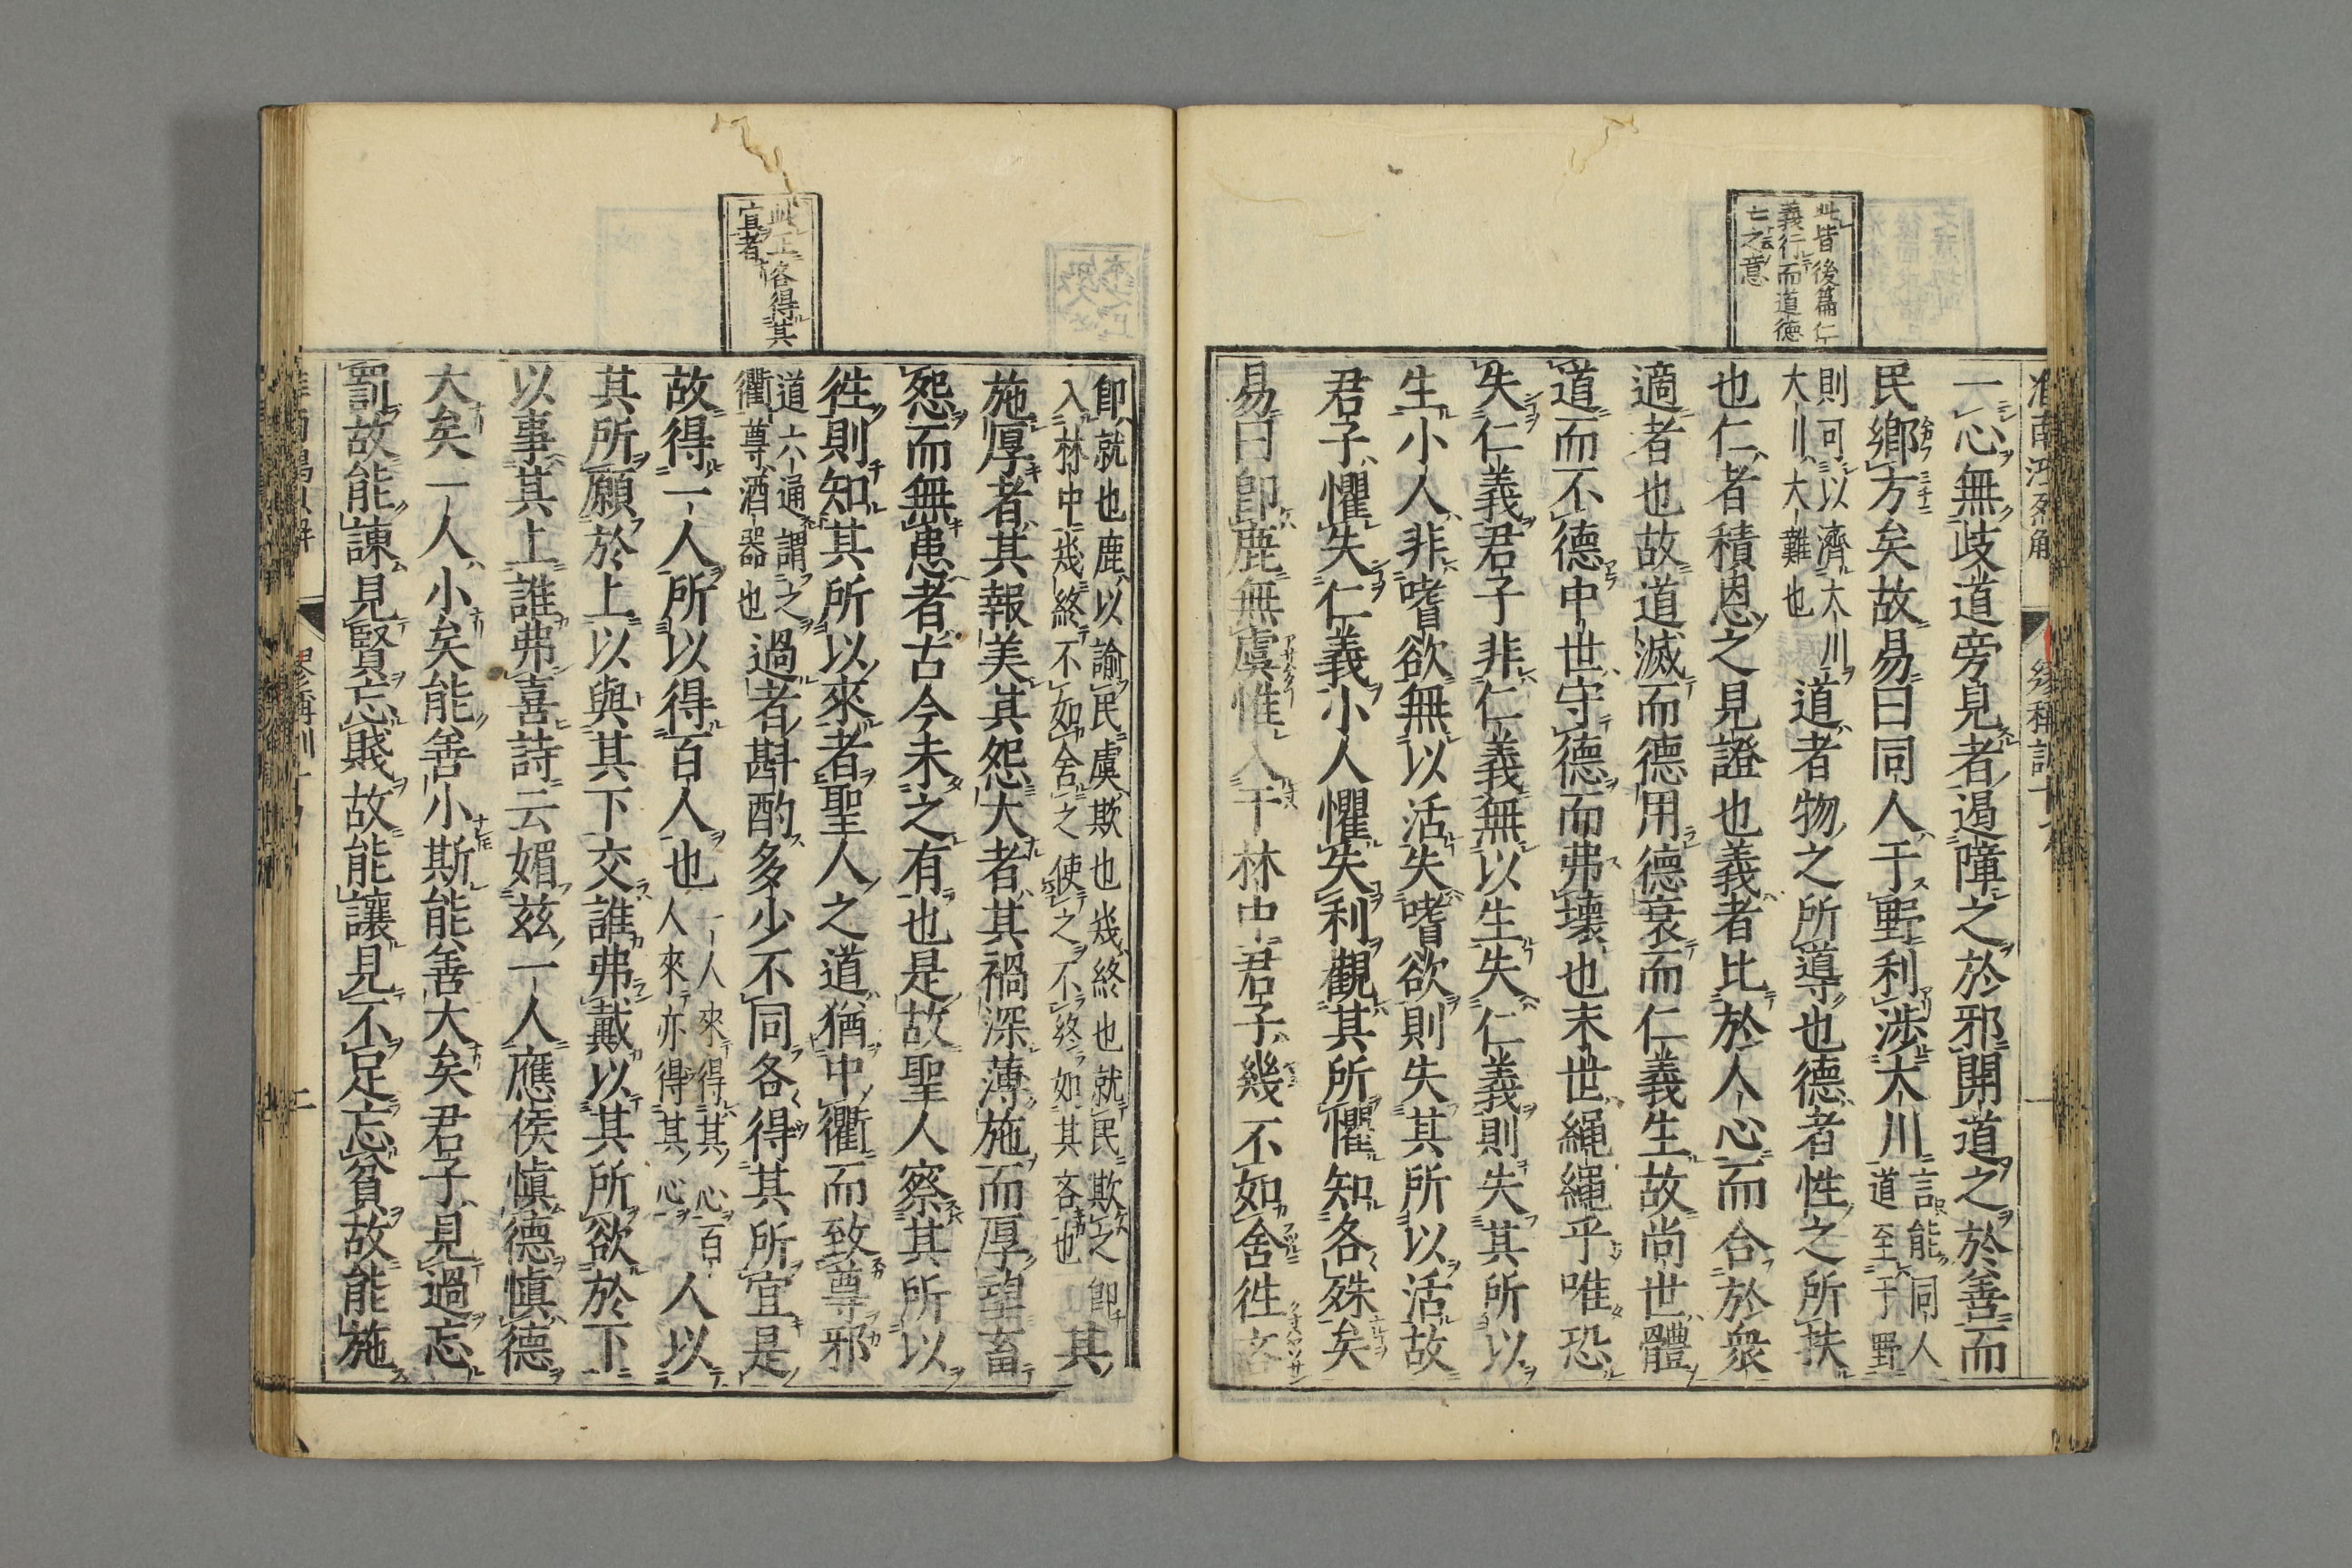 此皆後篇仁
義行而道德
亡之意
淮南鴻烈解
繆稱訓
一心無歧道旁見者遏障之於邪開道之於善而
民鄉方矣故易曰同人于野利涉大川言能同人
道至于野
則可以濟大川
大川大難也道者物之所導也德者性之所扶
也仁者積恩之見證也義者比於人心而合於衆
適者也故道滅而德用德衰而仁義生故尚世體
道而不德中世守德而弗壞也末世繩繩乎唯恐
失仁義君子非仁義無以生失仁義則失其所以
生小人非嗜欲無以活失嗜欲則失其所以活故
君子懼失仁義小人懼失利觀其所懼知各殊矣
易曰卽鹿無虞惟入于林中君子幾不如舍往吝
此正各得其
宜者
卽就也鹿以諭民虞欺也幾終也就民欺之卽
入林中幾終不如舍之使之不終如其吝也其
施厚者其報美其怨大者其禍深薄施而厚望畜
怨而無患者古今未之有也是故聖人察其所以
徃則知其所以來者聖人之道猶中衢而致尊邪
道六通謂之
衢尊酒器也過者斟酌多少不同各得其所宜是
故得一人所以得百人也一人來得其心百
人來亦得其心人以
其所願於上以與其下交誰弗戴以其所欲於下
以事其上誰弗喜詩云媚茲一人應侯愼德愼德
大矣一人小矣能善小斯能善大矣君子見過忘
罰故能諫見賢忘賤故能讓見不足忘貧故能施